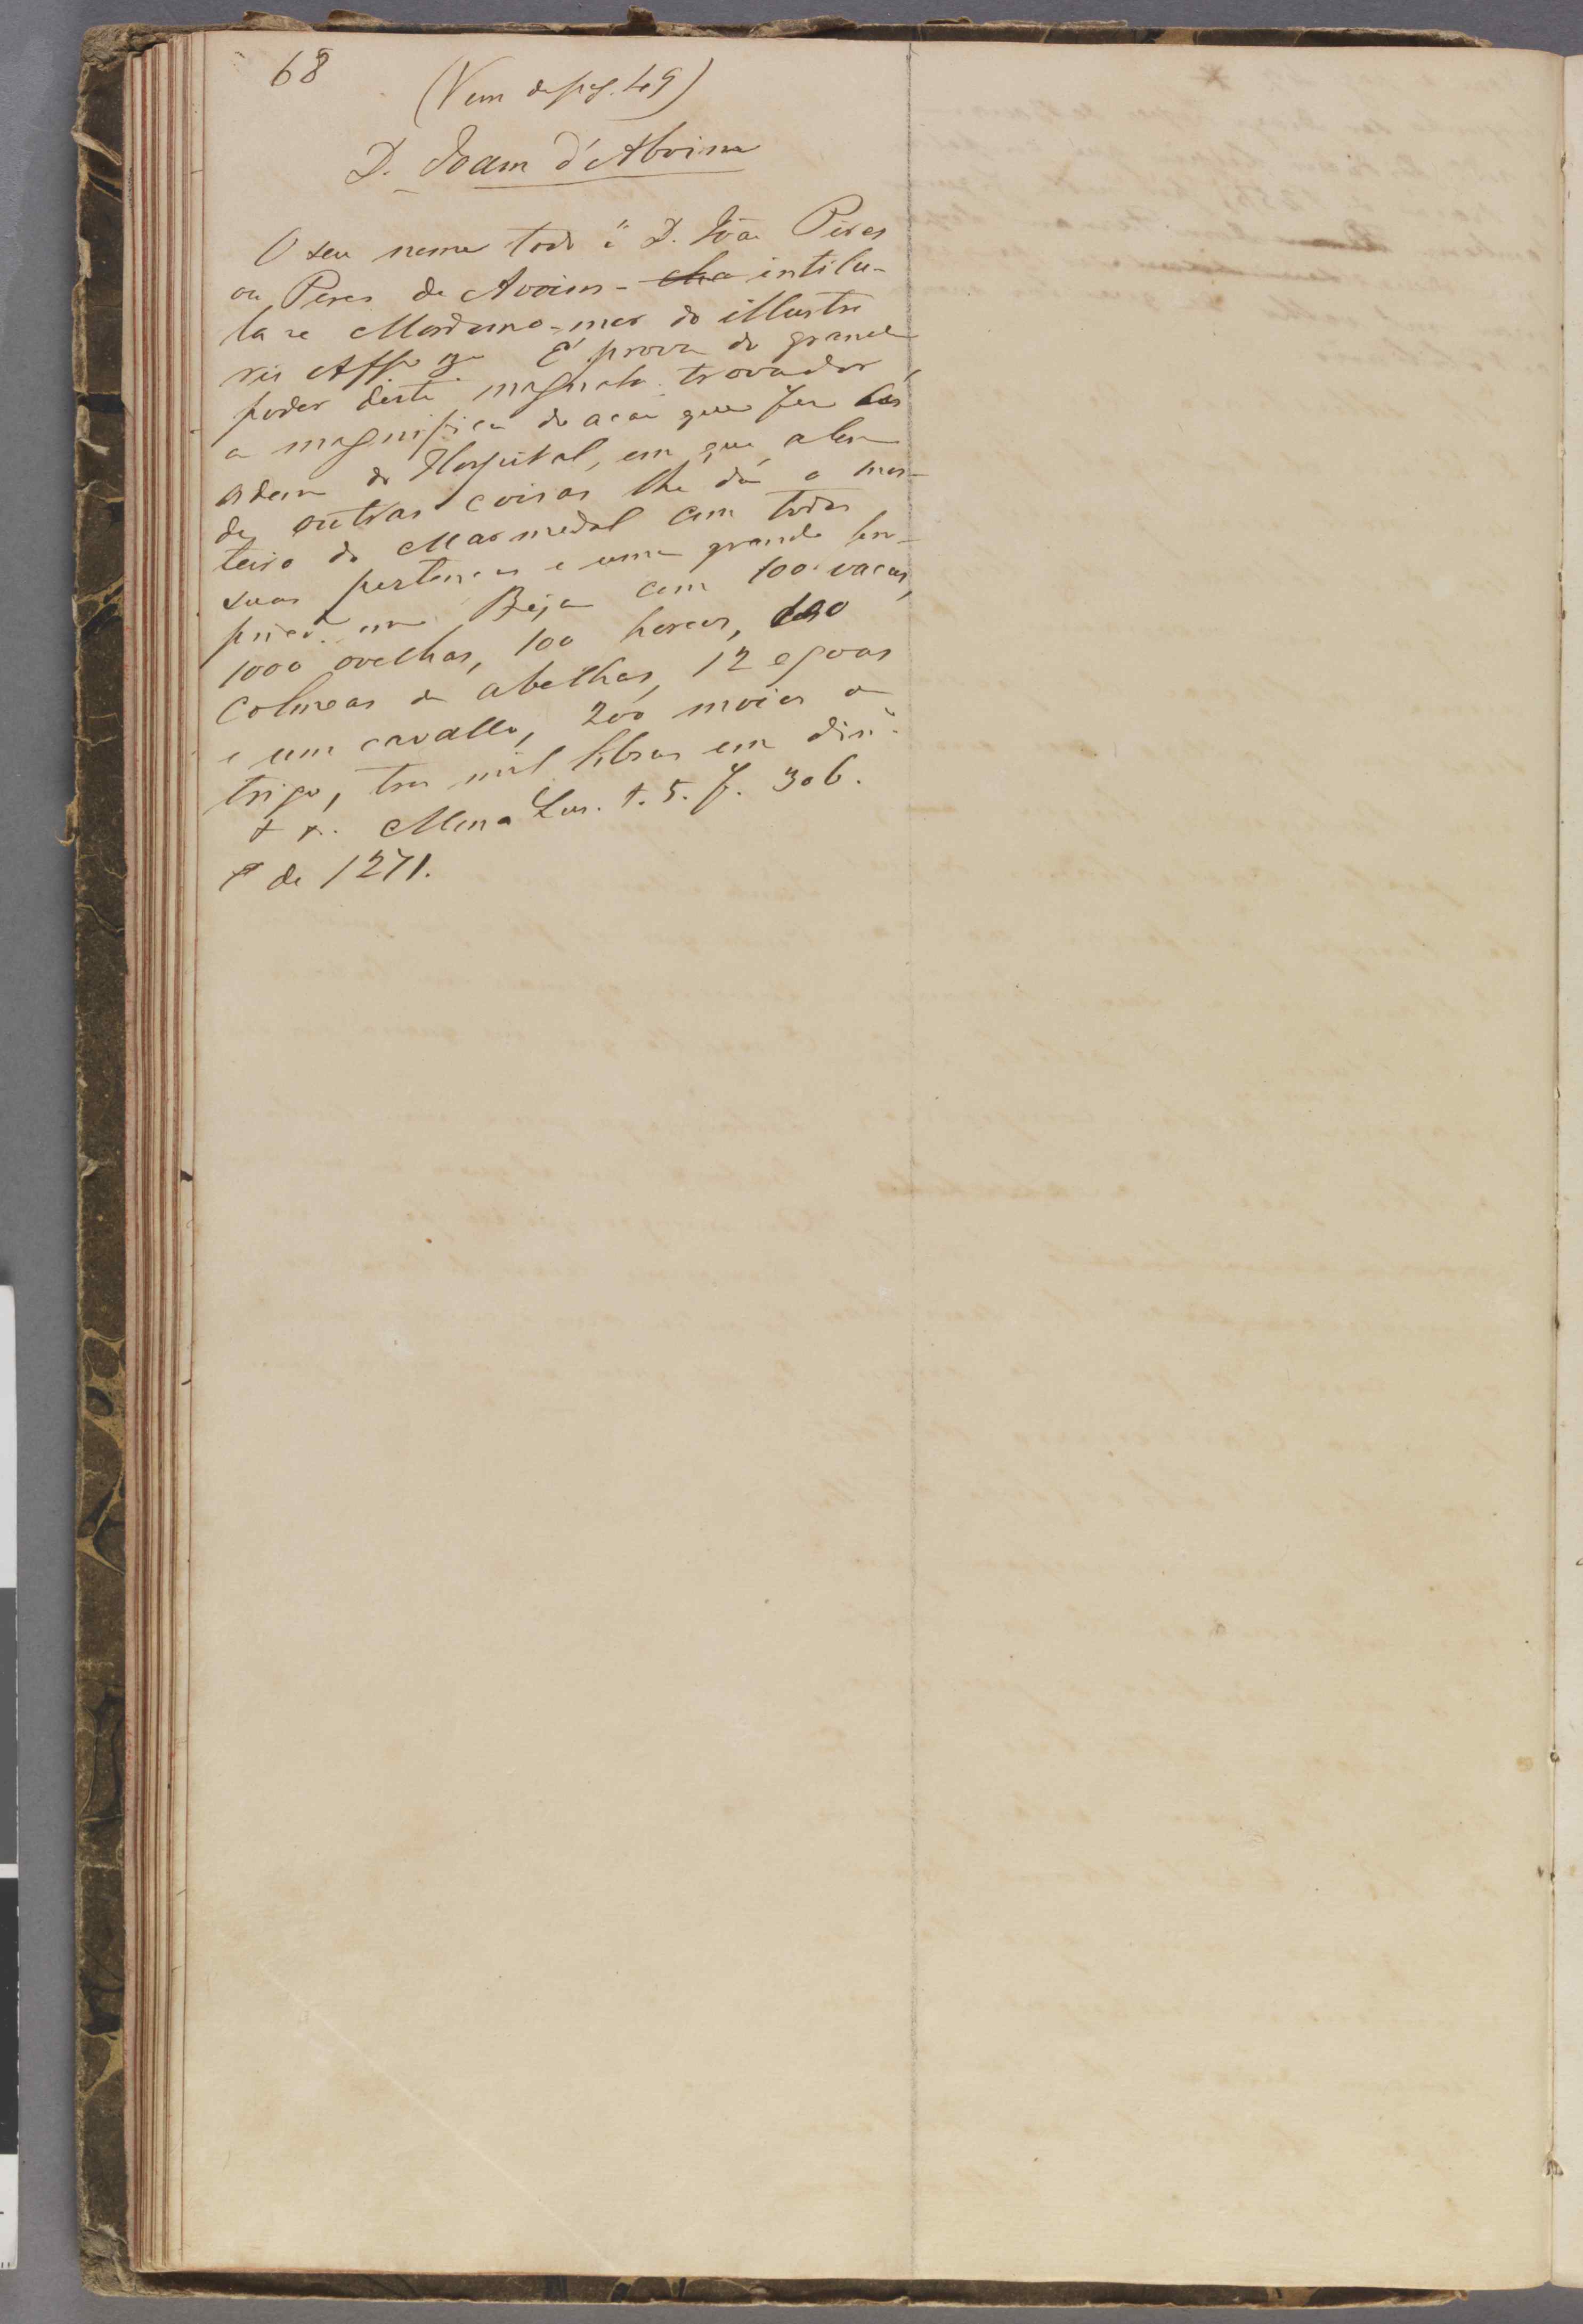 68
(Vem da pag. 49)
D. Joam d'Aboim
O seu nome todo é D. Joã Pires
ou Peres de Avoim - intitu-
la se Mordomo-mor do illustre
rei Affº 3º É prova do grande
poder deste magnata trovador,
a magnifica doaçaõ que fez á
ordem do Hospital, em que, alem
de outras coisas lhe dá o mos-
teiro do Marmedal com todas
suas pertenças e uma grande her-
em Beja com 100 vacas,
1000 ovelhas, 100 porcos,
Colmeas de abelhas, 12 egoas
e um cavallo, 200 moios de
trigo, tres mil libras em din.º
Mona Lus. t. 5. f. 306.
de 1271.